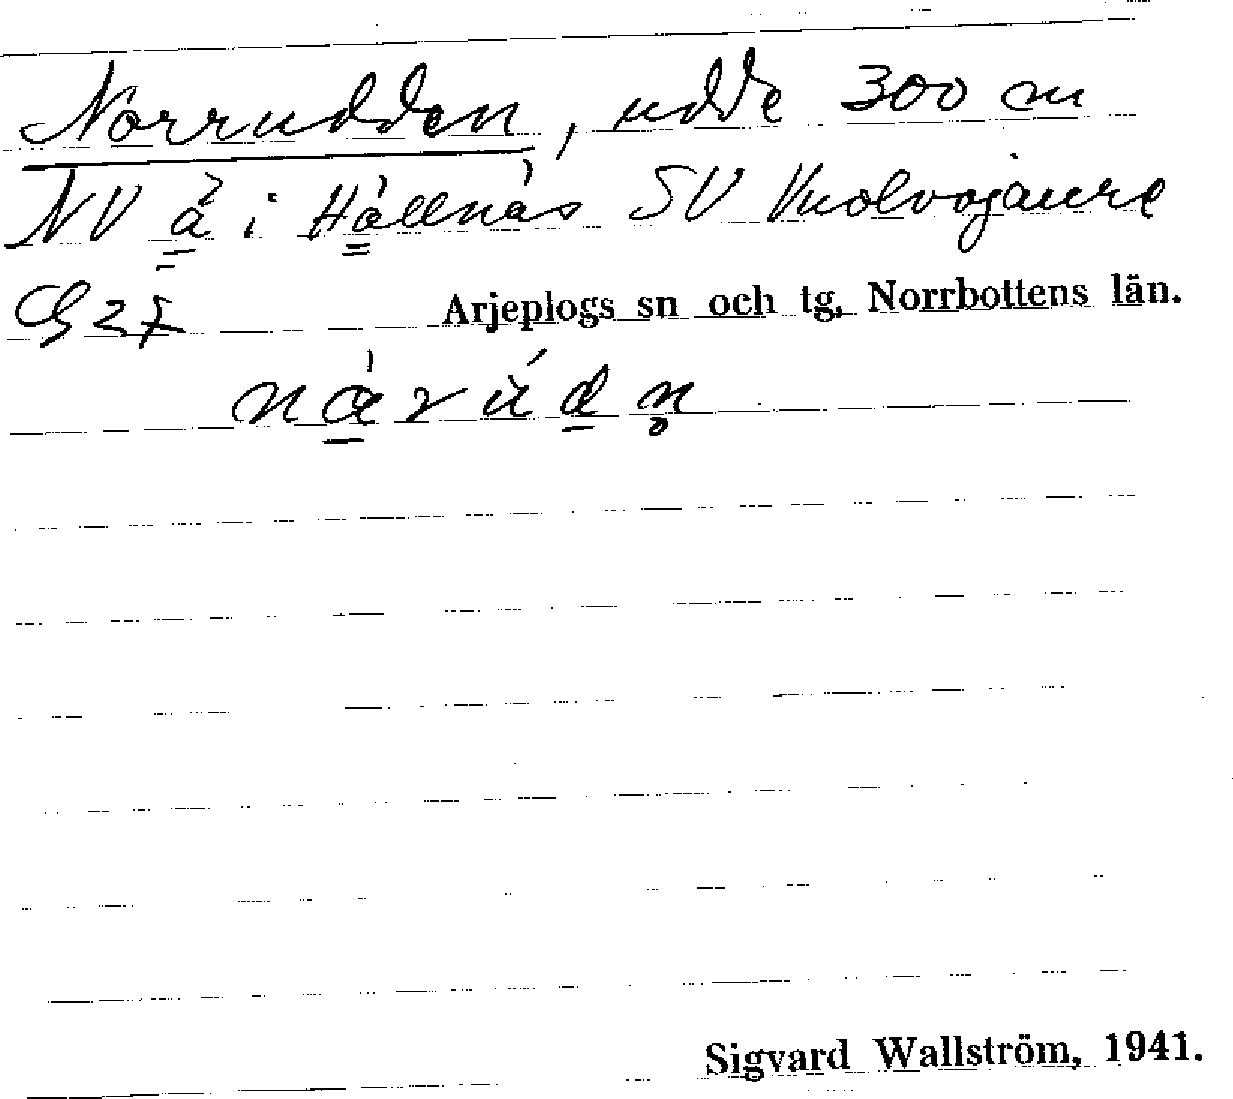 Norrudden, udde 300 m
NV å i Hållnäs SV Vuolvojaure
G 27 Arjeplogs sn och tg, Norrbottens län.
nàrúdn̥
Sigvard Wallström, 1941.